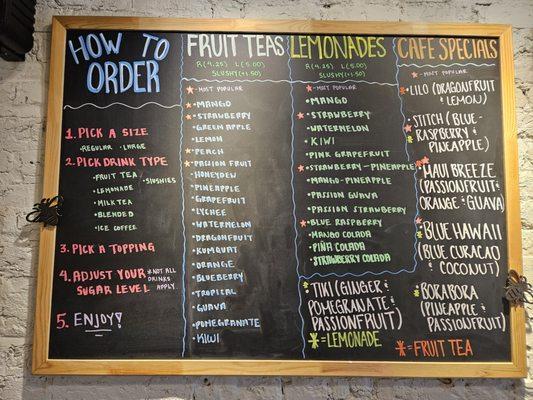 HOW TO
ORDER
1. PICK A SIZE
• REGULAR • LARGE
2. PICK DRINK TYPE
• FRUIT TEA • SLUSHIES
• LEMONADE
• MILK TEA
• BLENDED
• ICE COFFEE
3. PICK A TOPPING
4. ADJUST YOUR SUGAR LEVEL
*NOT ALL DRINKS APPLY
5. ENJOY!
FRUIT TEAS
R (4.25) L (5.00)
SLUSHY (+1.50)
* - MOST POPULAR
• MANGO
• STRAWBERRY
• GREEN APPLE
• LEMON
• PEACH
• PASSION FRUIT
• HONEYDEW
• PINEAPPLE
• GRAPEFRUIT
• LYCHEE
• WATERMELON
• DRAGONFRUIT
• KUMQUAT
• ORANGE
• BLUEBERRY
• TROPICAL
• GUAVA
• POMEGRANATE
• KIWI
LEMONADES
R (4.25) L (5.00)
SLUSHY (+1.50)
* - MOST POPULAR
• MANGO
• STRAWBERRY
• WATERMELON
• KIWI
• PINK GRAPEFRUIT
• STRAWBERRY-PINEAPPLE
• MANGO-PINEAPPLE
• PASSION GUAVA
• PASSION STRAWBERRY
• BLUE RASPBERRY
• MANGO COLADA
• PIÑA COLADA
• STRAWBERRY COLADA
TIKI (GINGER &
POMEGRANATE &
PASSIONFRUIT)
* = LEMONADE
CAFE SPECIALS
* - MOST POPULAR
LILO (DRAGONFRUIT
& LEMON)
STITCH (BLUE-
RASPBERRY &
PINEAPPLE)
MAUI BREEZE
(PASSIONFRUIT &
ORANGE & GUAVA)
BLUE HAWAII
(BLUE CURACAO
& COCONUT)
BORABORA
(PINEAPPLE &
PASSIONFRUIT)
* = FRUIT TEA